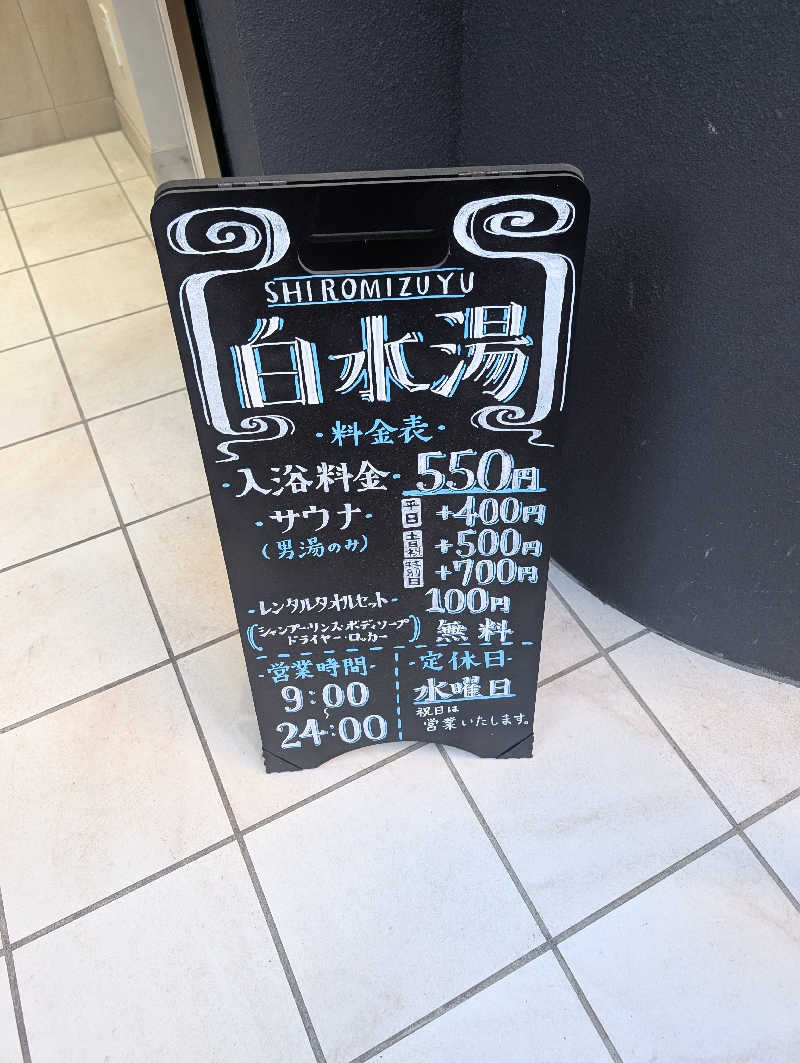 SHIROMIZUYU
白水湯
・料金表・
・入浴料金・ 550円
・サウナ・ 平日 +400円
(男湯のみ) 土日祝 +500円
特別日 +700円
-レンタルタオルセット- 100円
(シャンプー・リンス・ボディソープ
ドライヤー・ロッカー) 無料
-営業時間-
9:00
〜
24:00
-定休日-
水曜日
祝日は
営業いたします。